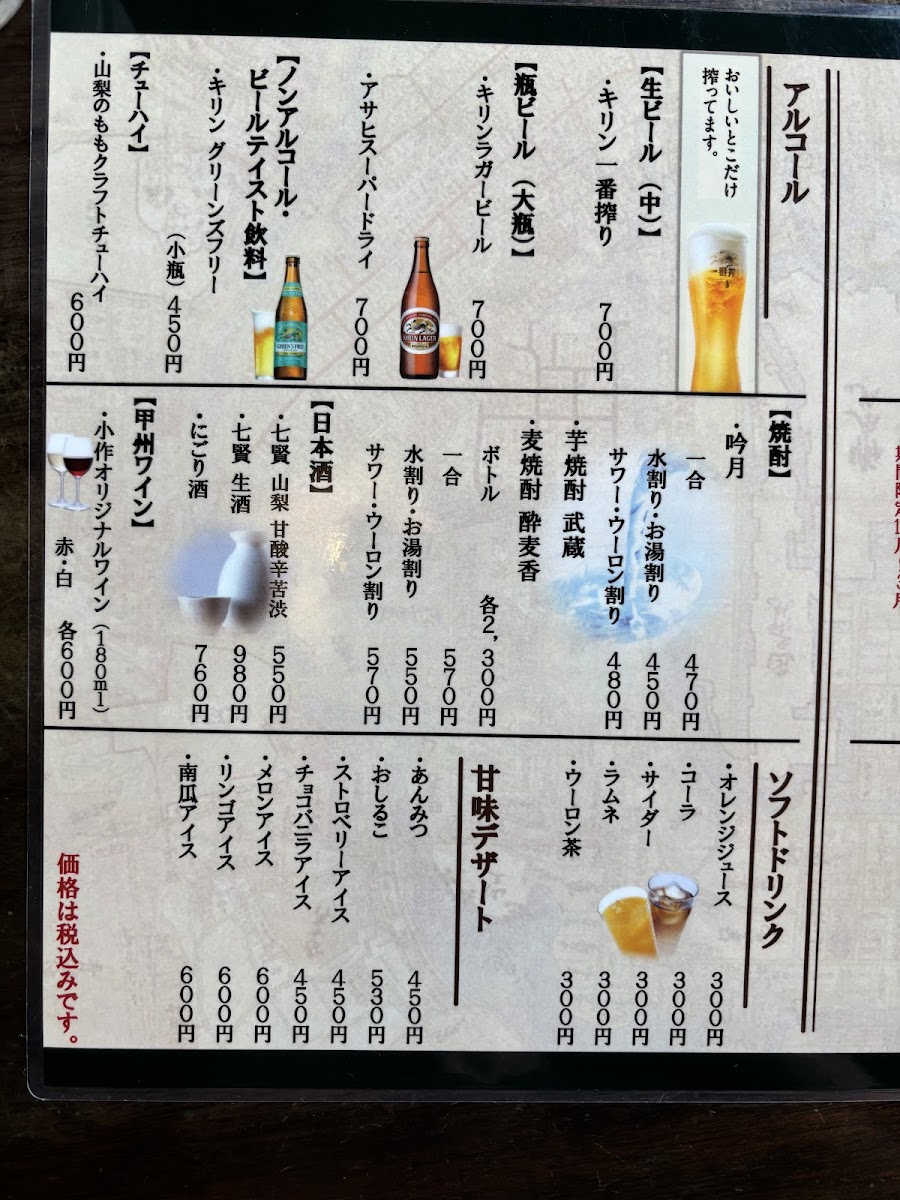 アルコール
おいしいとこだけ
搾ってます。
一番搾り
【生ビール(中)】
・キリン一番搾り 700円
【瓶ビール(大瓶)】
・キリンラガービール 700円
・アサヒスーパードライ 700円
KIRIN LAGER
【ノンアルコール・
ビールテイスト飲料】
・キリン グリーンズフリー
(小瓶)450円
GREEN'S FREE
【チューハイ】
・山梨のももクラフトチューハイ
600円
【焼酎】
・吟月
一合 470円
水割り・お湯割り 450円
サワー・ウーロン割り 480円
・芋焼酎 武蔵
・麦焼酎 酔麦香
ボトル 各2,300円
一合 570円
水割り・お湯割り 550円
サワー・ウーロン割り 570円
【日本酒】
・七賢 山梨 甘酸辛苦渋 550円
・七賢 生酒 980円
・にごり酒 760円
【甲州ワイン】
・小作オリジナルワイン(180ml)
赤・白 各600円
ソフトドリンク
・オレンジジュース 300円
・コーラ 300円
・サイダー 300円
・ラムネ 300円
・ウーロン茶 300円
甘味デザート
・あんみつ 450円
・おしるこ 530円
・ストロベリーアイス 450円
・チョコバニラアイス 450円
・メロンアイス 600円
・リンゴアイス 600円
・南瓜アイス 600円
価格は税込みです。